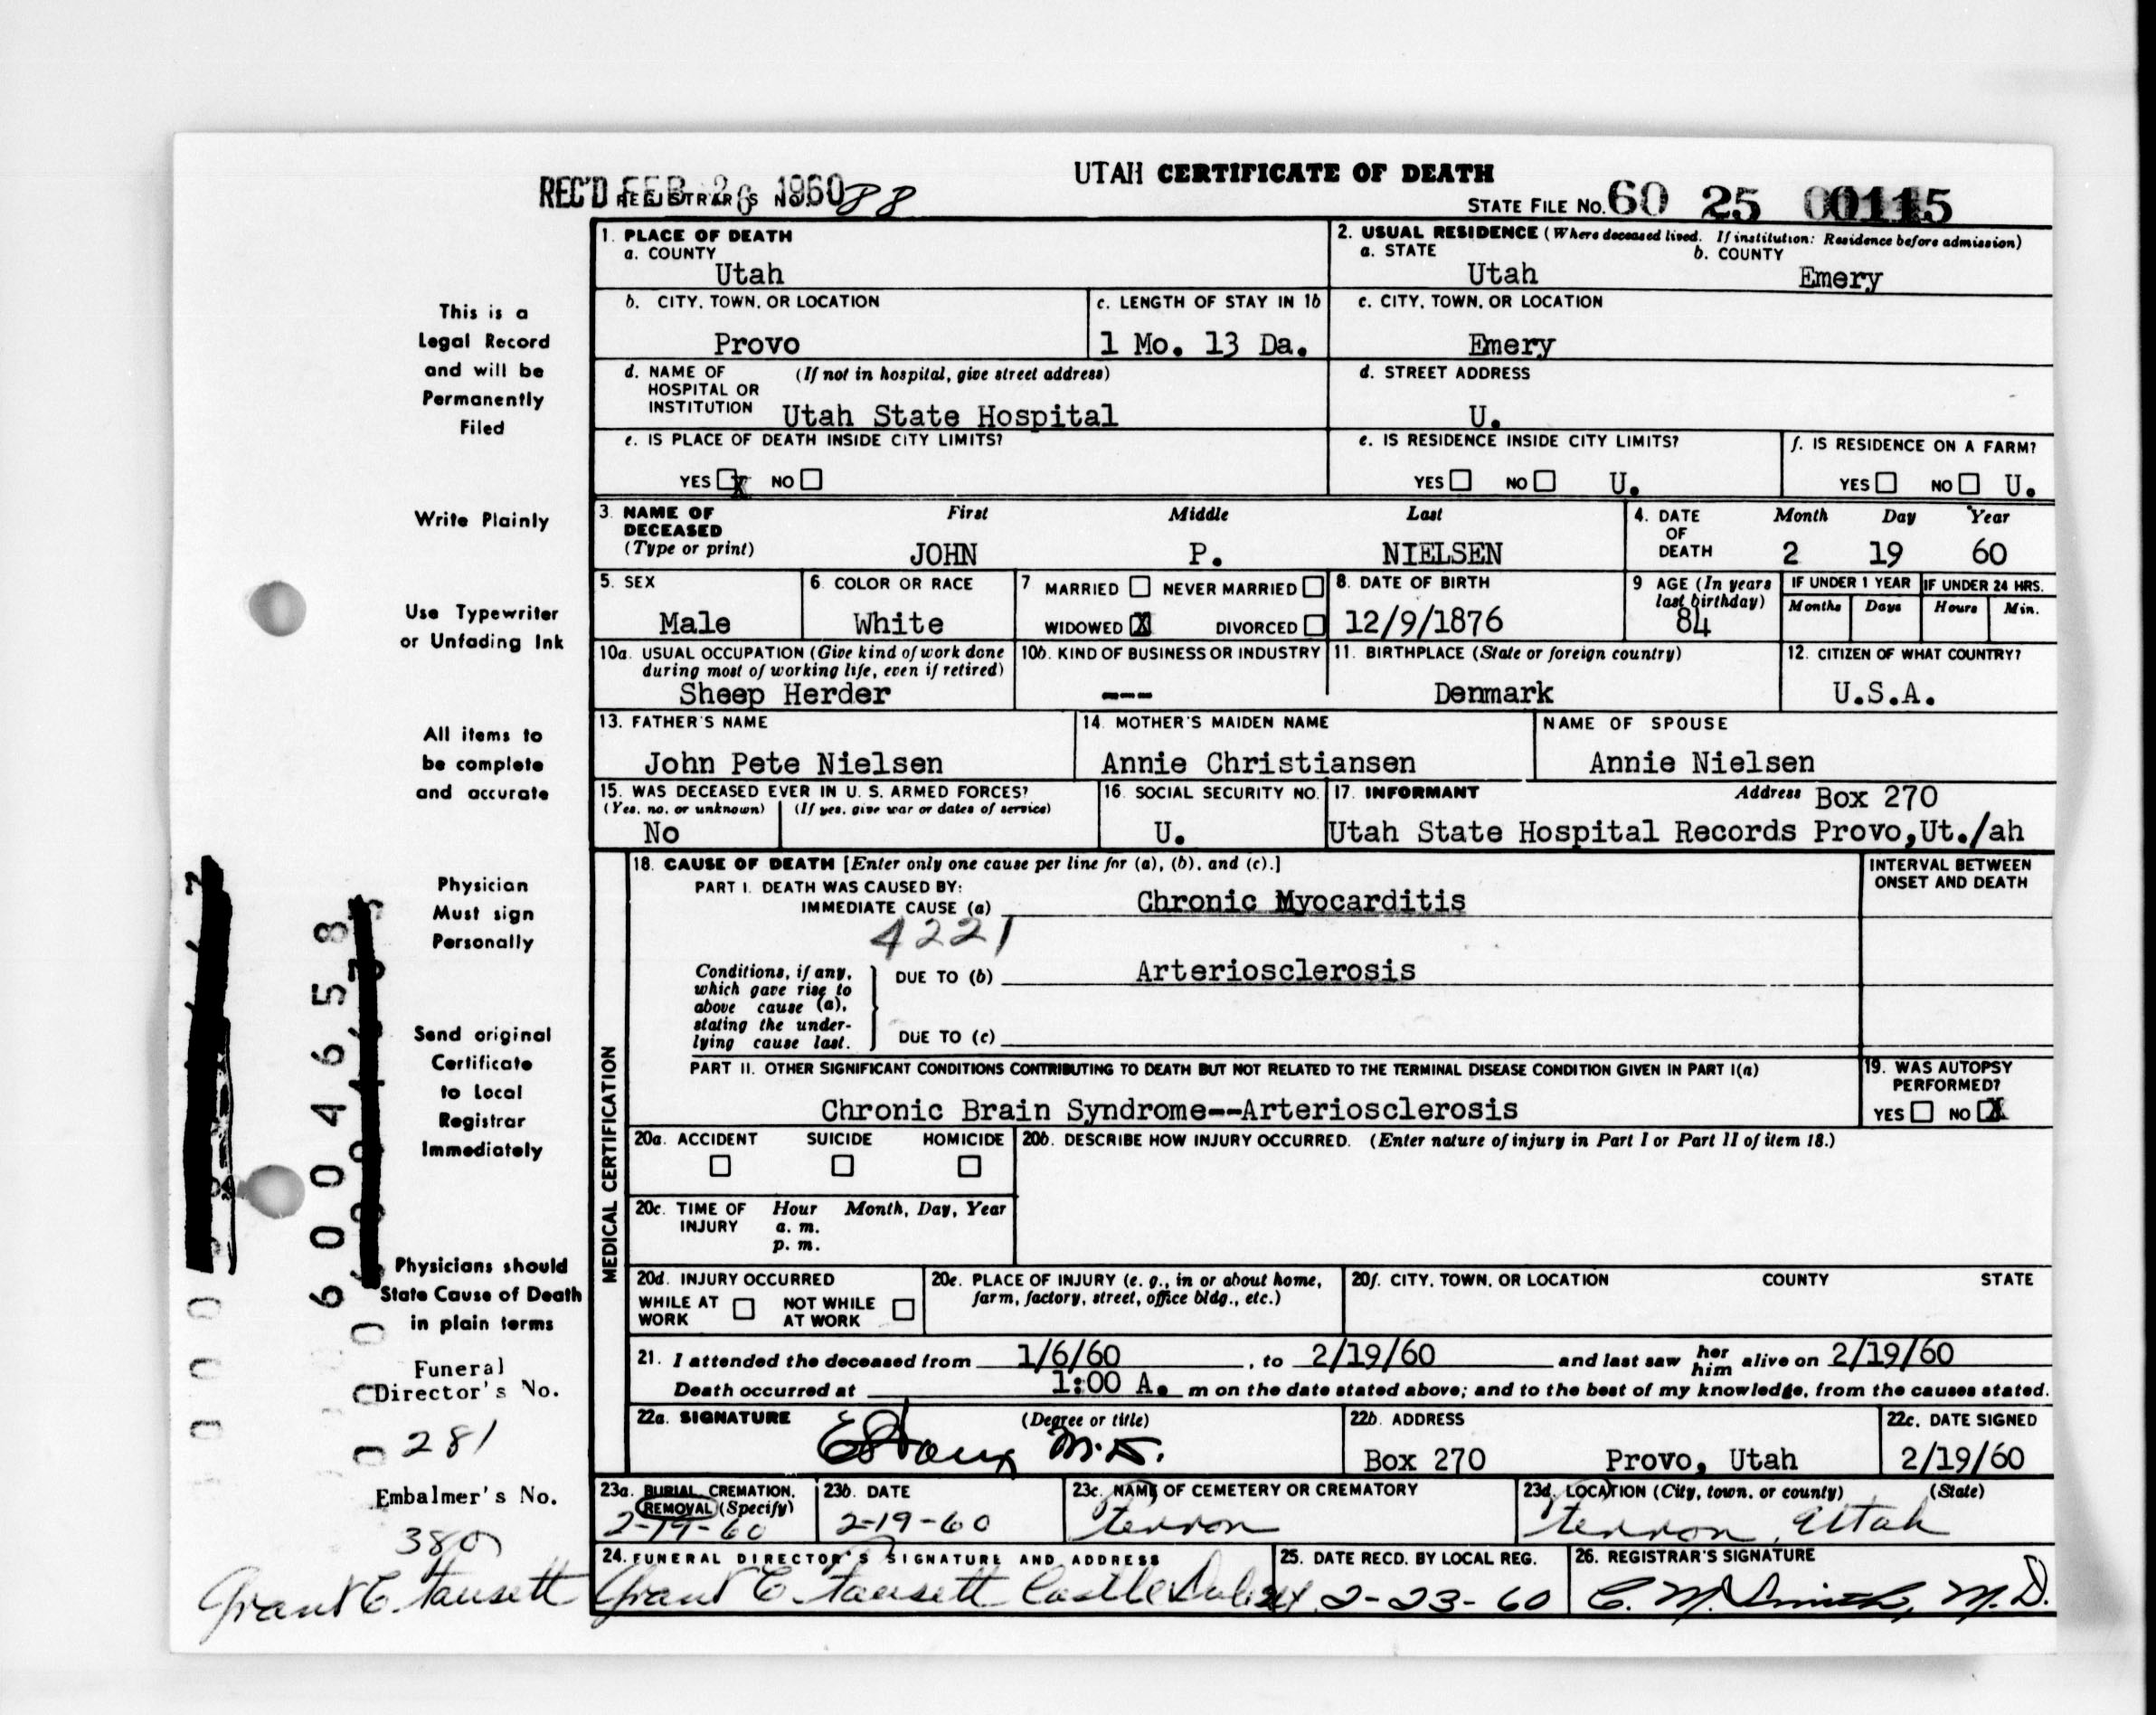 UTAH CERTIFICATE OF DEATH
REC'D FEB 26 1960
REGISTRAR'S NO. 88
STATE FILE NO. 60 25 00115
1. PLACE OF DEATH
a. COUNTY
Utah
2. USUAL RESIDENCE (Where deceased lived. If institution: Residence before admission)
a. STATE b. COUNTY
Utah Emery
b. CITY, TOWN, OR LOCATION
Provo
c. LENGTH OF STAY IN 1b
1 Mo. 13 Da.
c. CITY, TOWN, OR LOCATION
Emery
d. NAME OF (If not in hospital, give street address)
HOSPITAL OR
INSTITUTION Utah State Hospital
d. STREET ADDRESS
U.
e. IS PLACE OF DEATH INSIDE CITY LIMITS?
YES X NO
e. IS RESIDENCE INSIDE CITY LIMITS?
YES NO U.
f. IS RESIDENCE ON A FARM?
YES NO U.
3. NAME OF First Middle Last
DECEASED
(Type or print) JOHN P. NIELSEN
4. DATE Month Day Year
OF
DEATH 2 19 60
5. SEX
Male
6. COLOR OR RACE
White
7 MARRIED NEVER MARRIED
WIDOWED X DIVORCED
8. DATE OF BIRTH
12/9/1876
9 AGE (In years
last birthday)
84
IF UNDER 1 YEAR IF UNDER 24 HRS.
Months Days Hours Min.
10a. USUAL OCCUPATION (Give kind of work done
during most of working life, even if retired)
Sheep Herder
10b. KIND OF BUSINESS OR INDUSTRY
---
11. BIRTHPLACE (State or foreign country)
Denmark
12. CITIZEN OF WHAT COUNTRY?
U.S.A.
13. FATHER'S NAME
John Pete Nielsen
14. MOTHER'S MAIDEN NAME
Annie Christiansen
NAME OF SPOUSE
Annie Nielsen
15. WAS DECEASED EVER IN U. S. ARMED FORCES?
(Yes, no, or unknown) (If yes, give war or dates of service)
No
16. SOCIAL SECURITY NO.
U.
17. INFORMANT Address Box 270
Utah State Hospital Records Provo,Ut./ah
MEDICAL CERTIFICATION
18. CAUSE OF DEATH [Enter only one cause per line for (a), (b), and (c).]
PART I. DEATH WAS CAUSED BY:
IMMEDIATE CAUSE (a) Chronic Myocarditis
4221
Conditions, if any,
which gave rise to
above cause (a),
stating the under-
lying cause last.
DUE TO (b) Arteriosclerosis
DUE TO (c)
INTERVAL BETWEEN
ONSET AND DEATH
PART II. OTHER SIGNIFICANT CONDITIONS CONTRIBUTING TO DEATH BUT NOT RELATED TO THE TERMINAL DISEASE CONDITION GIVEN IN PART I(a)
Chronic Brain Syndrome--Arteriosclerosis
19. WAS AUTOPSY
PERFORMED?
YES NO X
20a. ACCIDENT SUICIDE HOMICIDE
20b. DESCRIBE HOW INJURY OCCURRED. (Enter nature of injury in Part I or Part II of item 18.)
20c. TIME OF Hour Month, Day, Year
INJURY a. m.
p. m.
20d. INJURY OCCURRED
WHILE AT NOT WHILE
WORK AT WORK
20e. PLACE OF INJURY (e. g., in or about home,
farm, factory, street, office bldg., etc.)
20f. CITY, TOWN, OR LOCATION COUNTY STATE
21. I attended the deceased from 1/6/60, to 2/19/60 and last saw her him alive on 2/19/60
Death occurred at 1:00 A. m on the date stated above; and to the best of my knowledge, from the causes stated.
22a. SIGNATURE (Degree or title)
M.D.
22b. ADDRESS
Box 270 Provo, Utah
22c. DATE SIGNED
2/19/60
23a. BURIAL, CREMATION,
REMOVAL (Specify)
2-19-60
23b. DATE
2-19-60
23c. NAME OF CEMETERY OR CREMATORY
Ferron
23d. LOCATION (City, town, or county) (State)
Ferron, Utah
24. FUNERAL DIRECTOR'S SIGNATURE AND ADDRESS
Grant E. Fausett Castle Dale
25. DATE RECD. BY LOCAL REG.
2-23-60
26. REGISTRAR'S SIGNATURE
C. M. Smith, M.D.
This is a
Legal Record
and will be
Permanently
Filed
Write Plainly
Use Typewriter
or Unfading Ink
All items to
be complete
and accurate
Physician
Must sign
Personally
Send original
Certificate
to Local
Registrar
Immediately
Physicians should
State Cause of Death
in plain terms
Funeral
Director's No.
281
Embalmer's No.
380
Grant E. Fausett
6004658